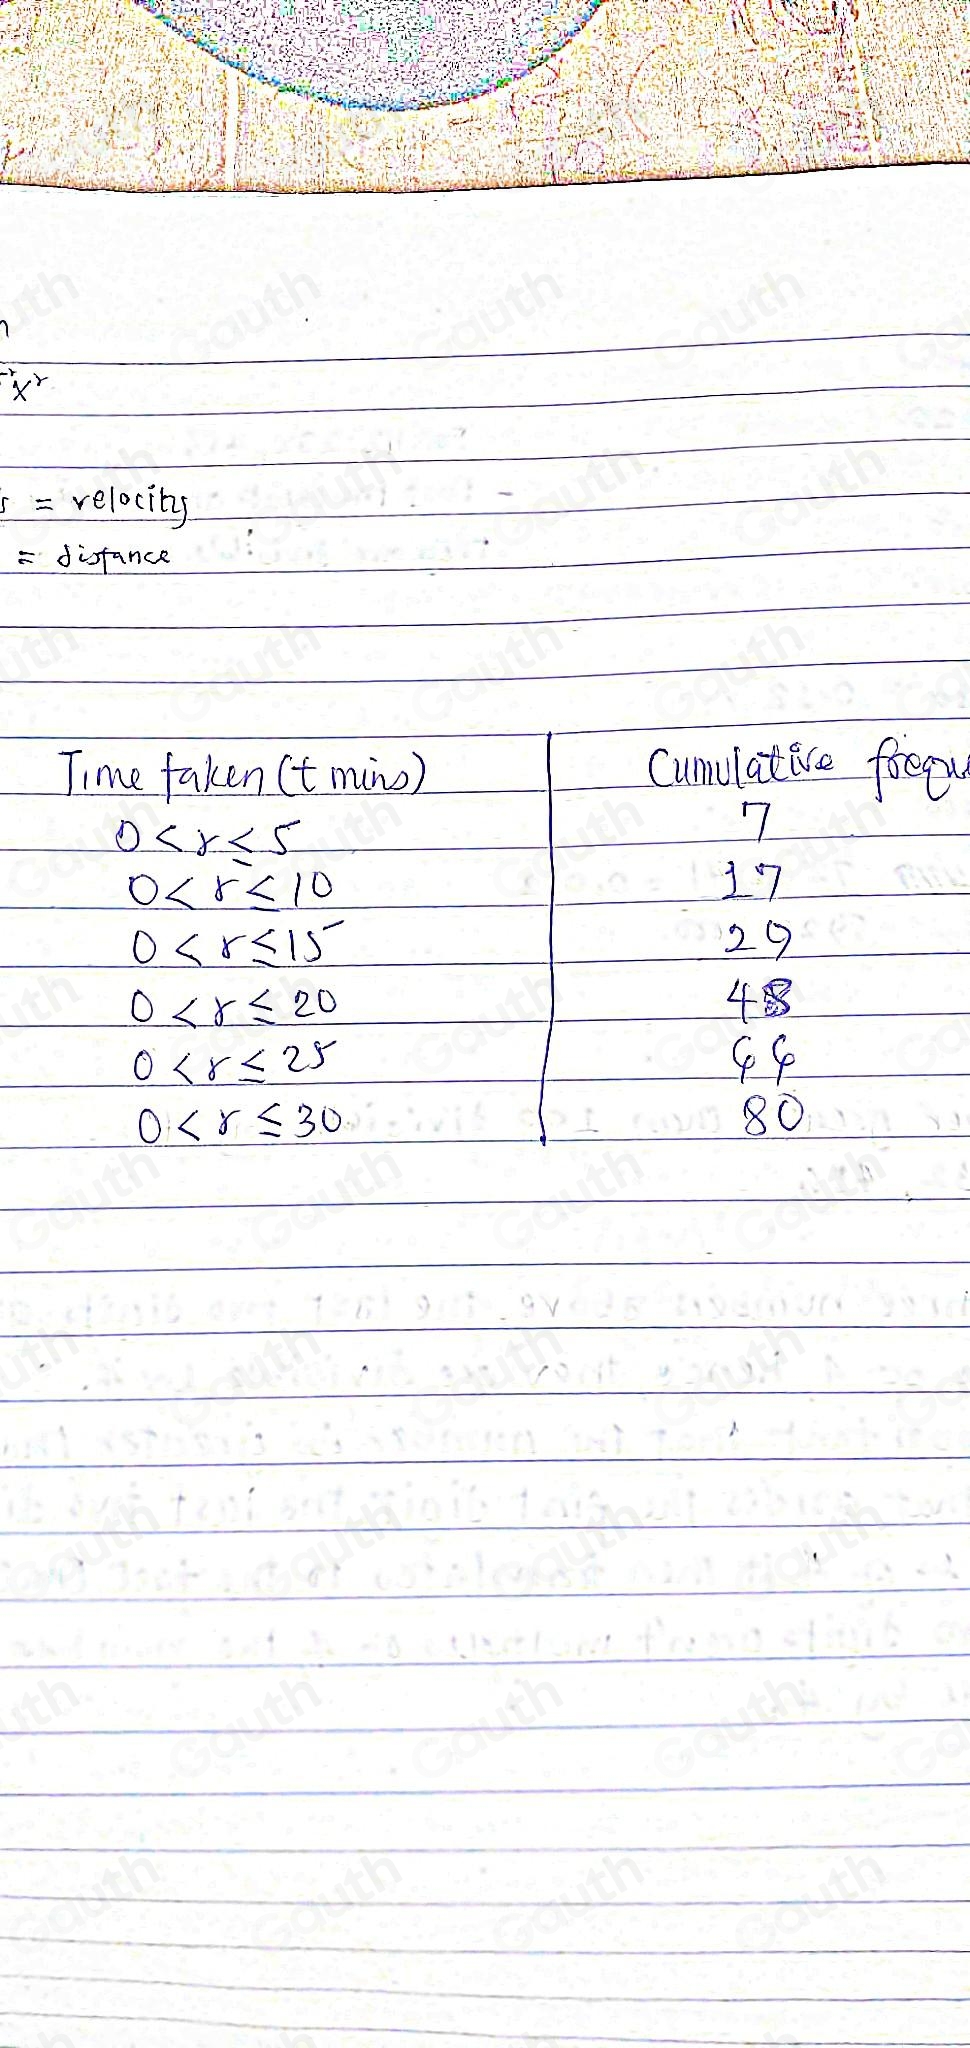 = velocity
= distance
Time taken (t mins) Cumulative frequ
0 < r ≤ 5 7
0 < r ≤ 10 17
0 < r ≤ 15 29
0 < r ≤ 20 48
0 < r ≤ 25 66
0 < r ≤ 30 80